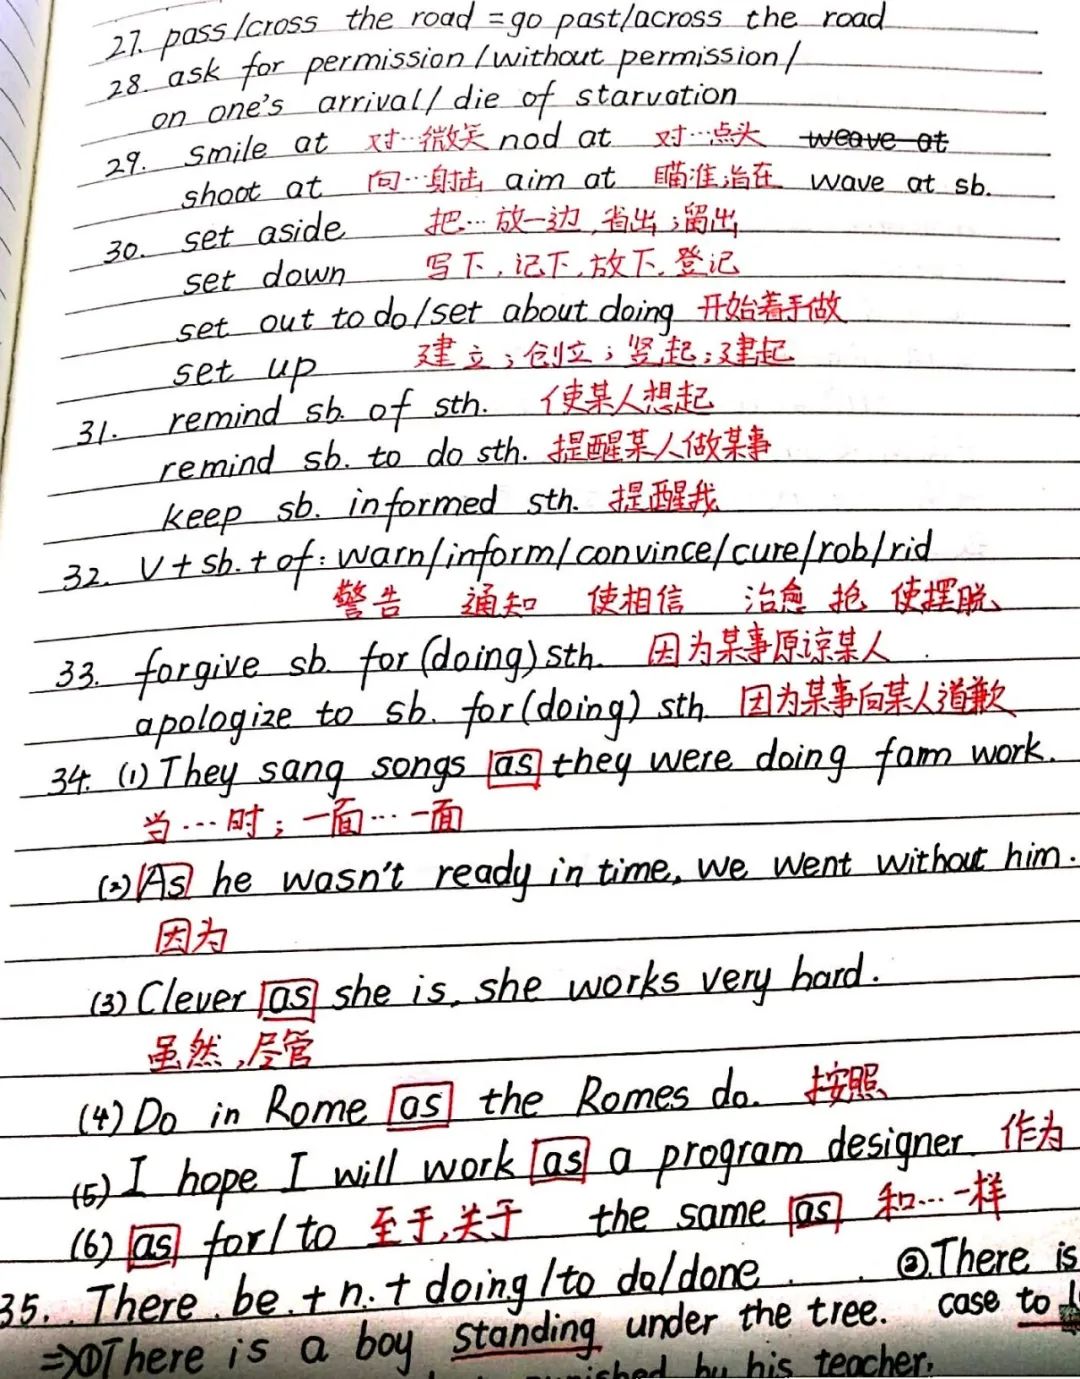 27. pass/cross the road = go past/across the road
28. ask for permission/without permission/
on one's arrival/die of starvation
29. smile at 对…微笑 nod at 对…点头 weave at
shoot at 向…射击 aim at 瞄准,旨在 wave at sb.
30. set aside 把…放一边,省出;留出
set down 写下,记下,放下,登记
set out to do/set about doing 开始着手做
set up 建立;创立;竖起;建起
31. remind sb. of sth. 使某人想起
remind sb. to do sth. 提醒某人做某事
keep sb. informed sth. 提醒我
32. V+sb.+of: warn/inform/convince/cure/rob/rid
警告 通知 使相信 治愈 抢 使摆脱
33. forgive sb. for (doing) sth. 因为某事原谅某人
apologize to sb. for (doing) sth. 因为某事向某人道歉
34. (1) They sang songs as they were doing fam work.
当…时;一面…一面
(2) As he wasn't ready in time, we went without him.
因为
(3) Clever as she is, she works very hard.
虽然,尽管
(4) Do in Rome as the Romes do. 按照
(5) I hope I will work as a program designer. 作为
(6) as for/to 至于,关于 the same as 和…一样
35. There be + n. + doing/to do/done ②.There is
⇒①There is a boy standing under the tree. case to
by his teacher.